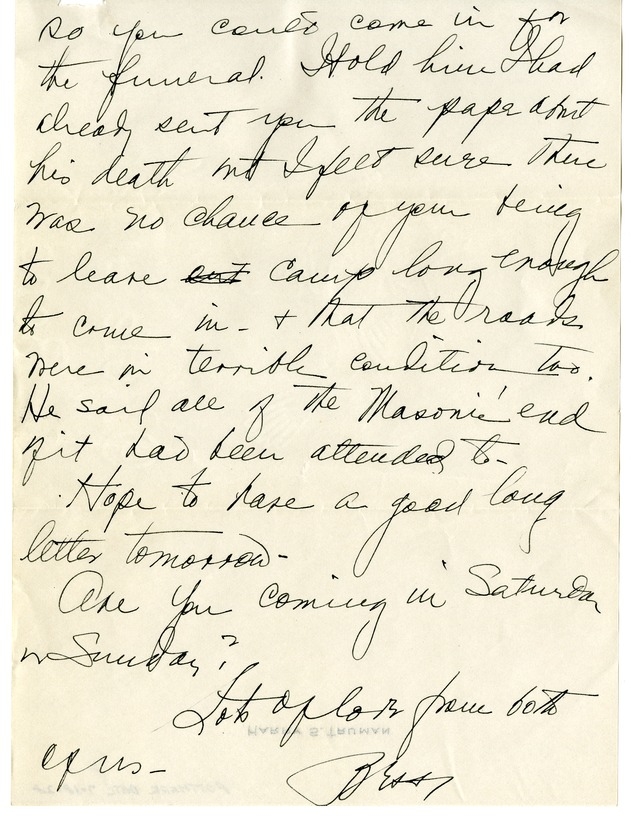 so you could come in for
the funeral. I told him I had
already sent you the paper about
his death but I felt sure there
was no chance of your being
to leave out camp long enough
to come in - & that the roads
were in terrible condition too.
He said all of the Masonic end
of it had been attended to -
Hope to have a good long
letter tomorrow -
Are you coming in Saturday
or Sunday?
Lots of love from both
of us -
Bess
HARRY S. TRUMAN